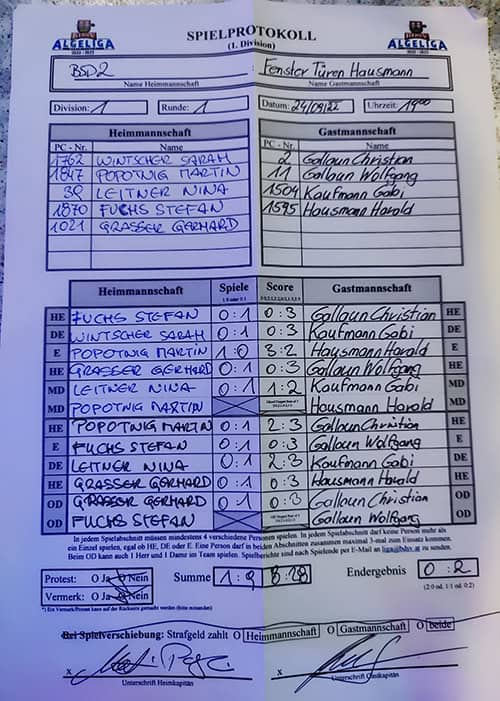 ALGELIGA
SPIELPROTOKOLL
(1. Division)
ALGELIGA
BSD2 : Fenster Türen Hausmann
Name Heimmannschaft Name Gastmannschaft
Division: 1 Runde: 1 Datum: 24/09/22 Uhrzeit: 19:00
Heimmannschaft Gastmannschaft
PC - Nr. Name PC - Nr. Name
1762 WINTSCHER SARAH 2 Gallaun Christian
1847 POPOTNIG MARTIN 11 Gallaun Wolfgang
39 LEITNER NINA 1504 Kaufmann Gabi
1870 FUCHS STEFAN 1595 Hausmann Harald
1021 GRASSER GERHARD
Heimmannschaft Spiele Score Gastmannschaft
HE FUCHS STEFAN 0:1 0:3 Gallaun Christian HE
DE WINTSCHER SARAH 0:1 0:3 Kaufmann Gabi DE
E POPOTNIG MARTIN 1:0 3:2 Hausmann Harald E
HE GRASSER GERHARD 0:1 0:3 Gallaun Wolfgang HE
MD LEITNER NINA 0:1 1:2 Kaufmann Gabi MD
MD POPOTNIG MARTIN Hausmann Harald MD
HE POPOTNIG MARTIN 0:1 2:3 Gallaun Christian HE
E FUCHS STEFAN 0:1 0:3 Gallaun Wolfgang E
DE LEITNER NINA 0:1 2:3 Kaufmann Gabi DE
HE GRASSER GERHARD 0:1 0:3 Hausmann Harald HE
OD GRASSER GERHARD 0:1 0:3 Gallaun Christian OD
OD FUCHS STEFAN Gallaun Wolfgang OD
In jedem Spielabschnitt müssen mindestens 4 verschiedene Personen spielen. In jedem Spielabschnitt darf keine Person mehr als
ein Einzel spielen, egal ob HE, DE oder E. Eine Person darf in beiden Abschnitten zusammen maximal 3-mal zum Einsatz kommen.
Beim OD kann auch 1 Herr und 1 Dame im Team spielen. Spielbericht sind nach Spielende per E-Mail an liga@bdsv.at zu senden.
Protest: O Ja O Nein Summe 1:9 8:28 Endergebnis 0:2
Vermerk: O Ja O Nein (2:0 od. 1:1 od. 0:2)
*) Ein Vermerk/Protest kann auf der Rückseite gemacht werden (bitte ankreuzen)
Bei Spielverschiebung: Strafgeld zahlt O Heimmannschaft O Gastmannschaft O beide
x x
Unterschrift Heimkapitän Unterschrift Gastkapitän